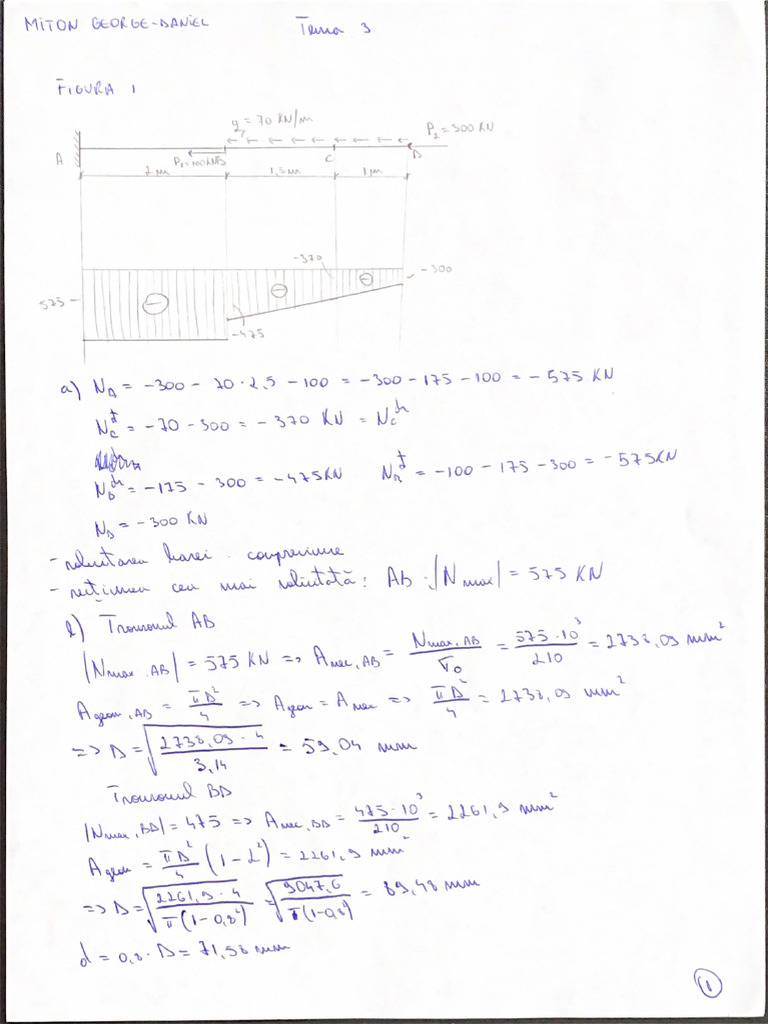 MITON GEORGE-DANIEL Tema 3
FIGURA 1
q = 70 KN/m
P₂ = 300 KN
A P₁=100KN B C D
2m 1,5m 1m
-370
-300
575
-475
a) N_A = -300 - 70·2,5 - 100 = -300 - 175 - 100 = -575 KN
N_C^f = -70 - 300 = -370 KN = N_C^h
N_B^h = -175 - 300 = -475KN N_B^f = -100 - 175 - 300 = -575KN
N_D = -300 KN
- solicitarea barei: compresiune
- secțiunea cea mai solicitată: AB : |N max| = 575 KN
b) Tronsonul AB
|N max, AB| = 575 KN => A nec, AB = N max, AB / σ₀ = 575·10³ / 210 = 2738,09 mm²
A geom, AB = πD²/4 => A geom = A nec => πD²/4 = 2738,09 mm²
=> D = √(2738,09·4 / 3,14) = 59,04 mm
Tronsonul BD
|N max, BD| = 475 => A nec, BD = 475·10³ / 210 = 2261,9 mm²
A geom = πD²/4 (1 - α²) = 2261,9 mm²
=> D = √(2261,9·4 / π(1-0,8²)) = √(9047,6 / π(1-0,8²)) = 89,48 mm
d = 0,8·D = 71,58 mm
1